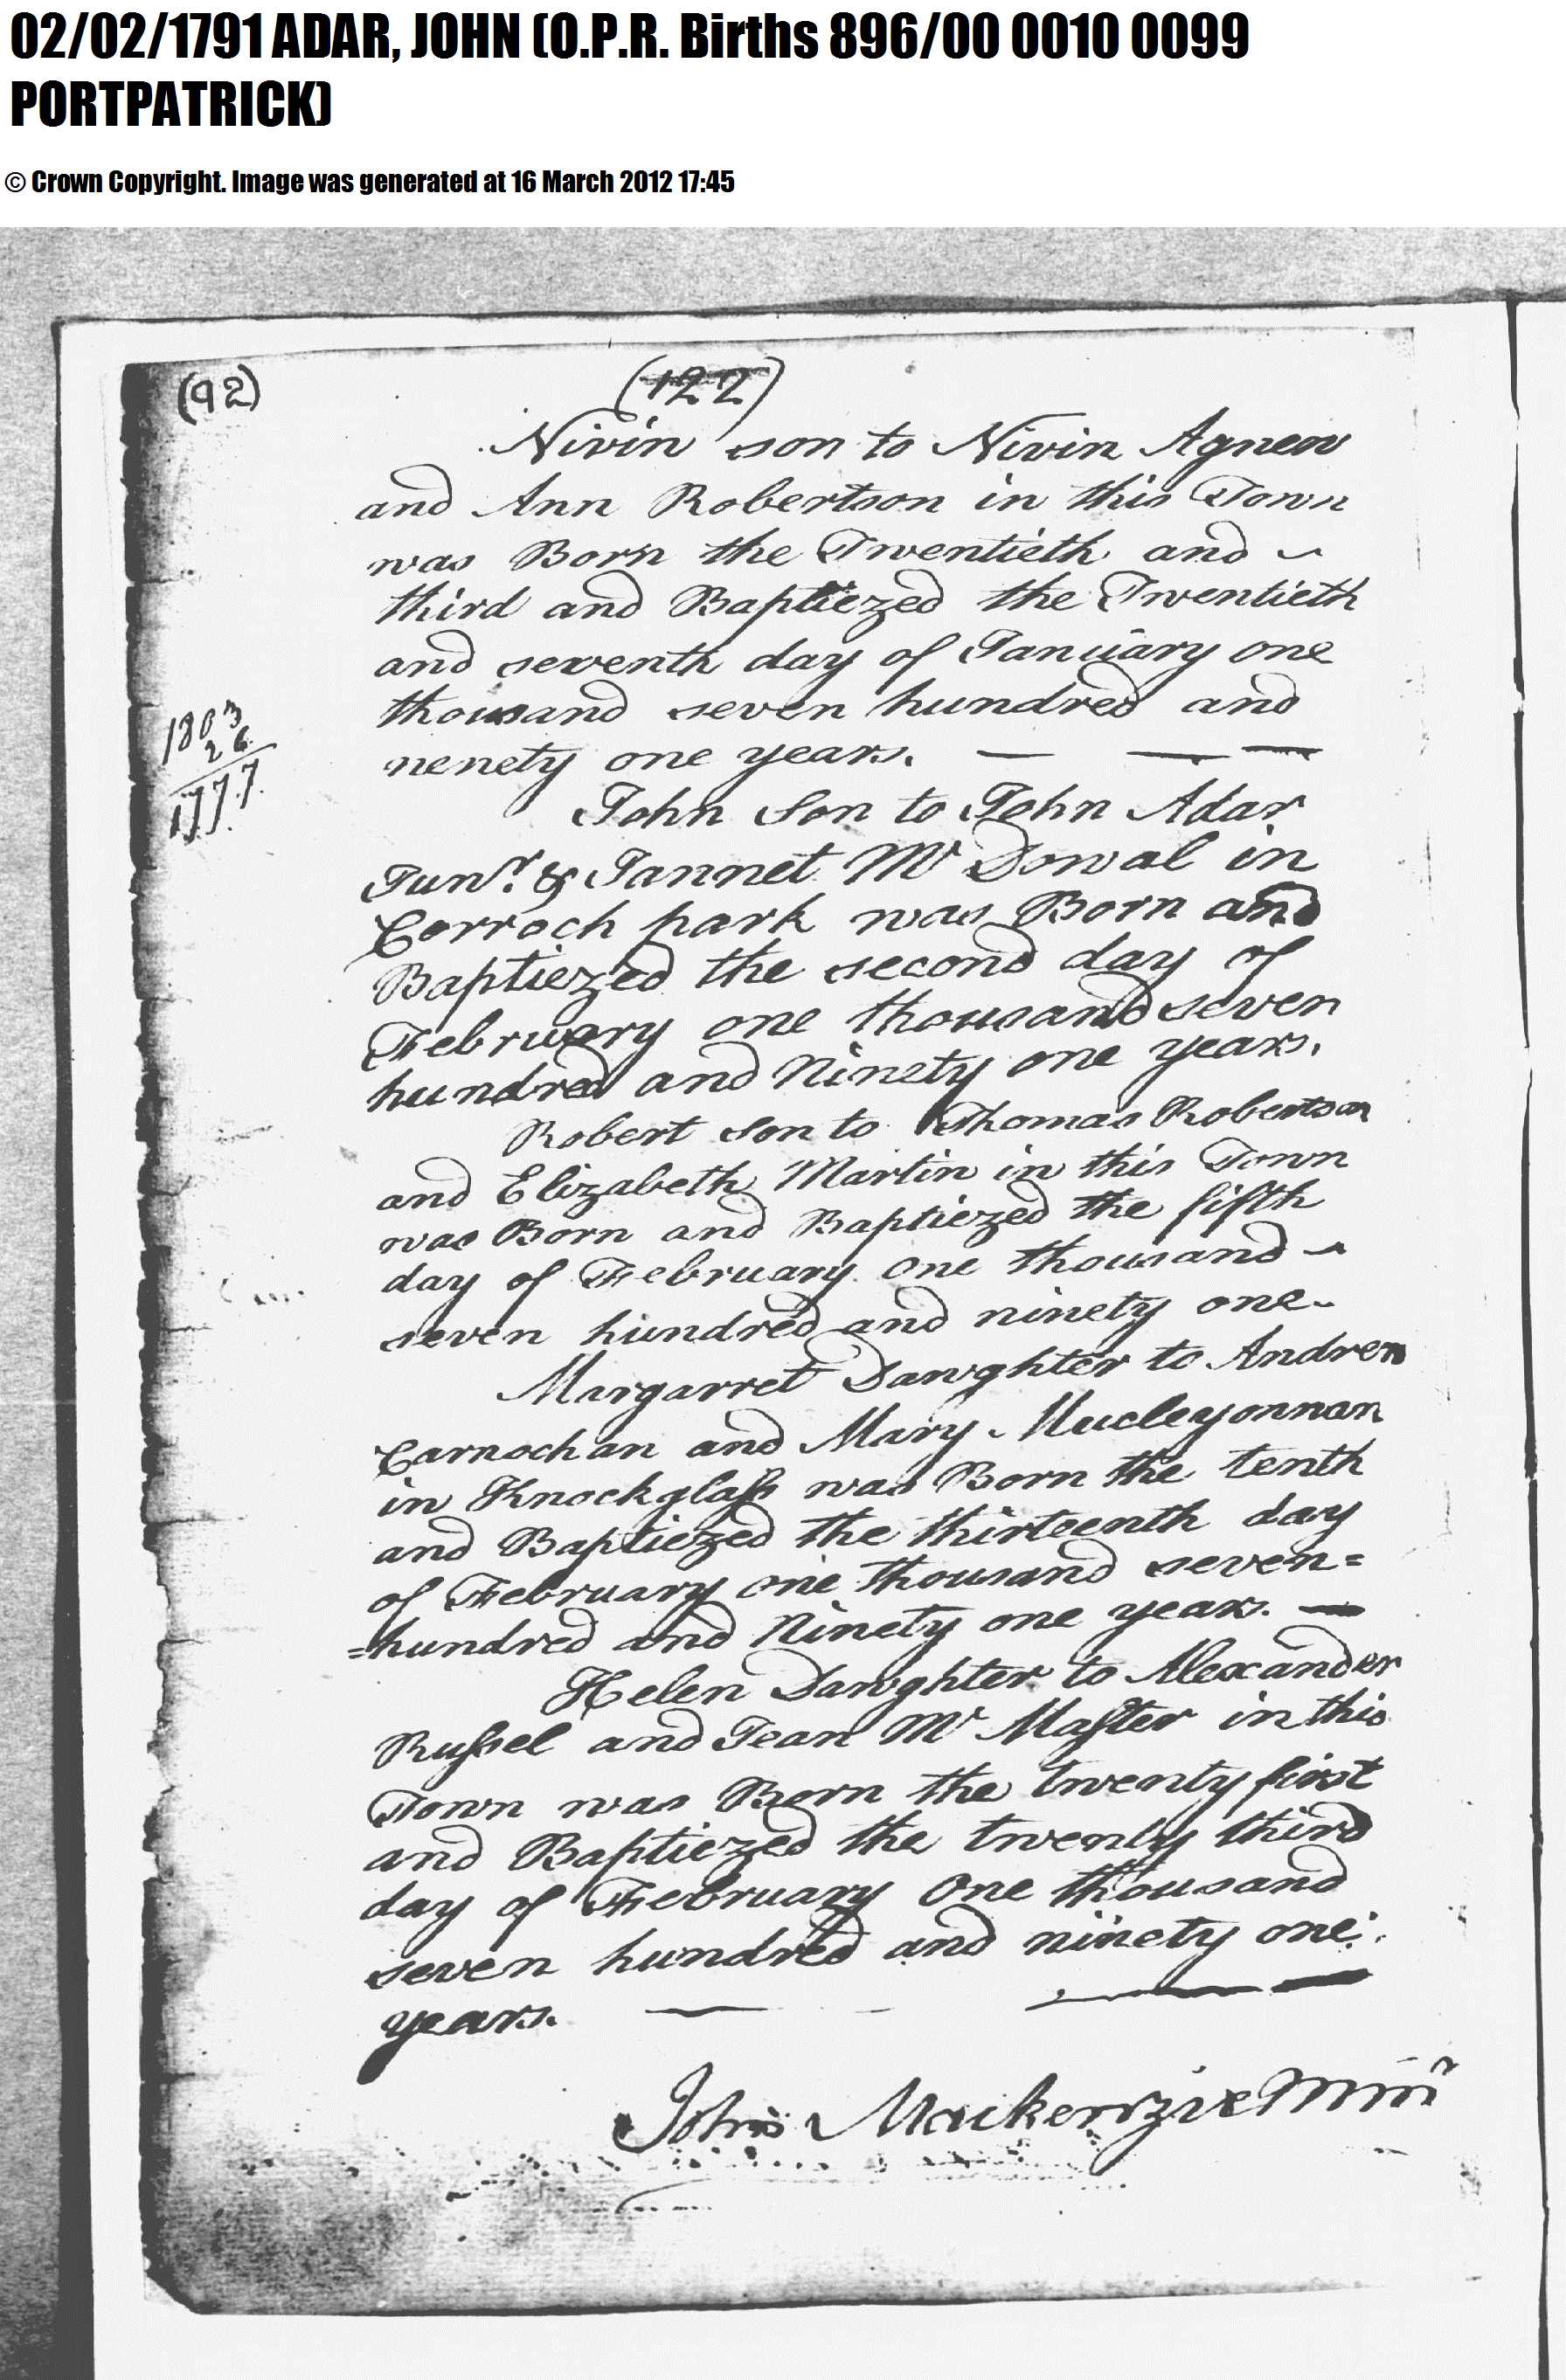 02/02/1791 ADAR, JOHN (O.P.R. Births 896/00 0010 0099
PORTPATRICK)
© Crown Copyright. Image was generated at 16 March 2012 17:45
(92)
(122)
Nivin son to Nivin Agnew
and Ann Robertson in this Town
was Born the Twentieth and
third and Baptiezed the Twentieth
and seventh day of January one
thousand seven hundred and
nenety one years.
1803
26
1777
John Son to John Adar
Junr. & Jannet Mc Dowal in
Corroch park was Born and
Baptiezed the second day of
February one thousand seven
hundred and Ninety one years.
Robert Son to Thomas Robertson
and Elizabeth Martin in this Town
was Born and Baptiezed the fifth
day of February One thousand
seven hundred and ninety one
Margarret Dawghter to Andrew
Carnochan and Mary Mucleyonnan
in Knockglass was Born the tenth
and Baptiezed the thirteenth day
of February one thousand seven=
=hundred and Ninety one years.
Helen Dawghter to Alexander
Russel and Jean Mc Master in this
Town was Born the twenty first
and Baptiezed the twenty third
day of February One thousand
seven hundred and ninety one
years.
John Mackenzie Minr